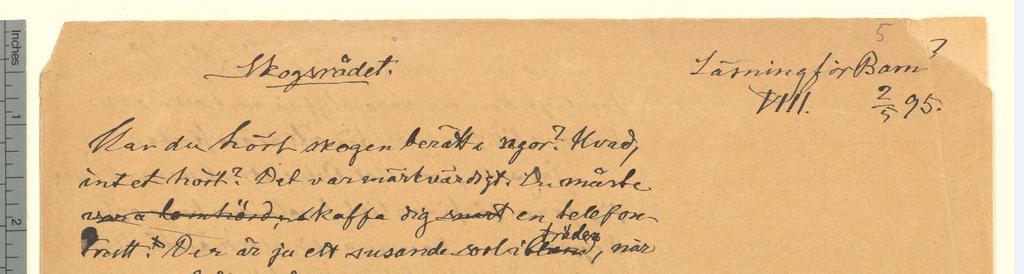 5
Skogsrådet.
Läsning för Barn?
VIII. 2/5 95.
Har du hört skogen berätta sagor? Hvad,
intet hört? Det var märkvärdigt. Du måste
vara lomhörd, skaffa dig snart en telefon-
tratt! Der är ju ett susande sorl i träden, när
Inches
1
2